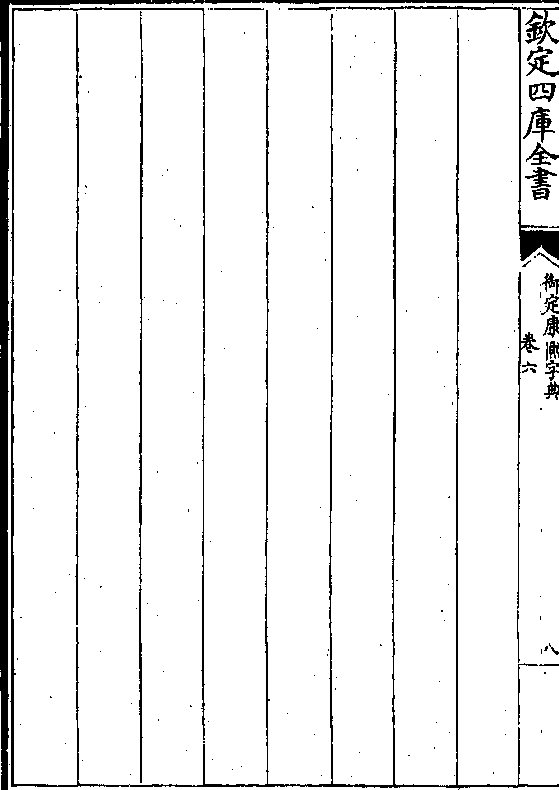 欽定四庫全書
御定康熙字典
卷六
八